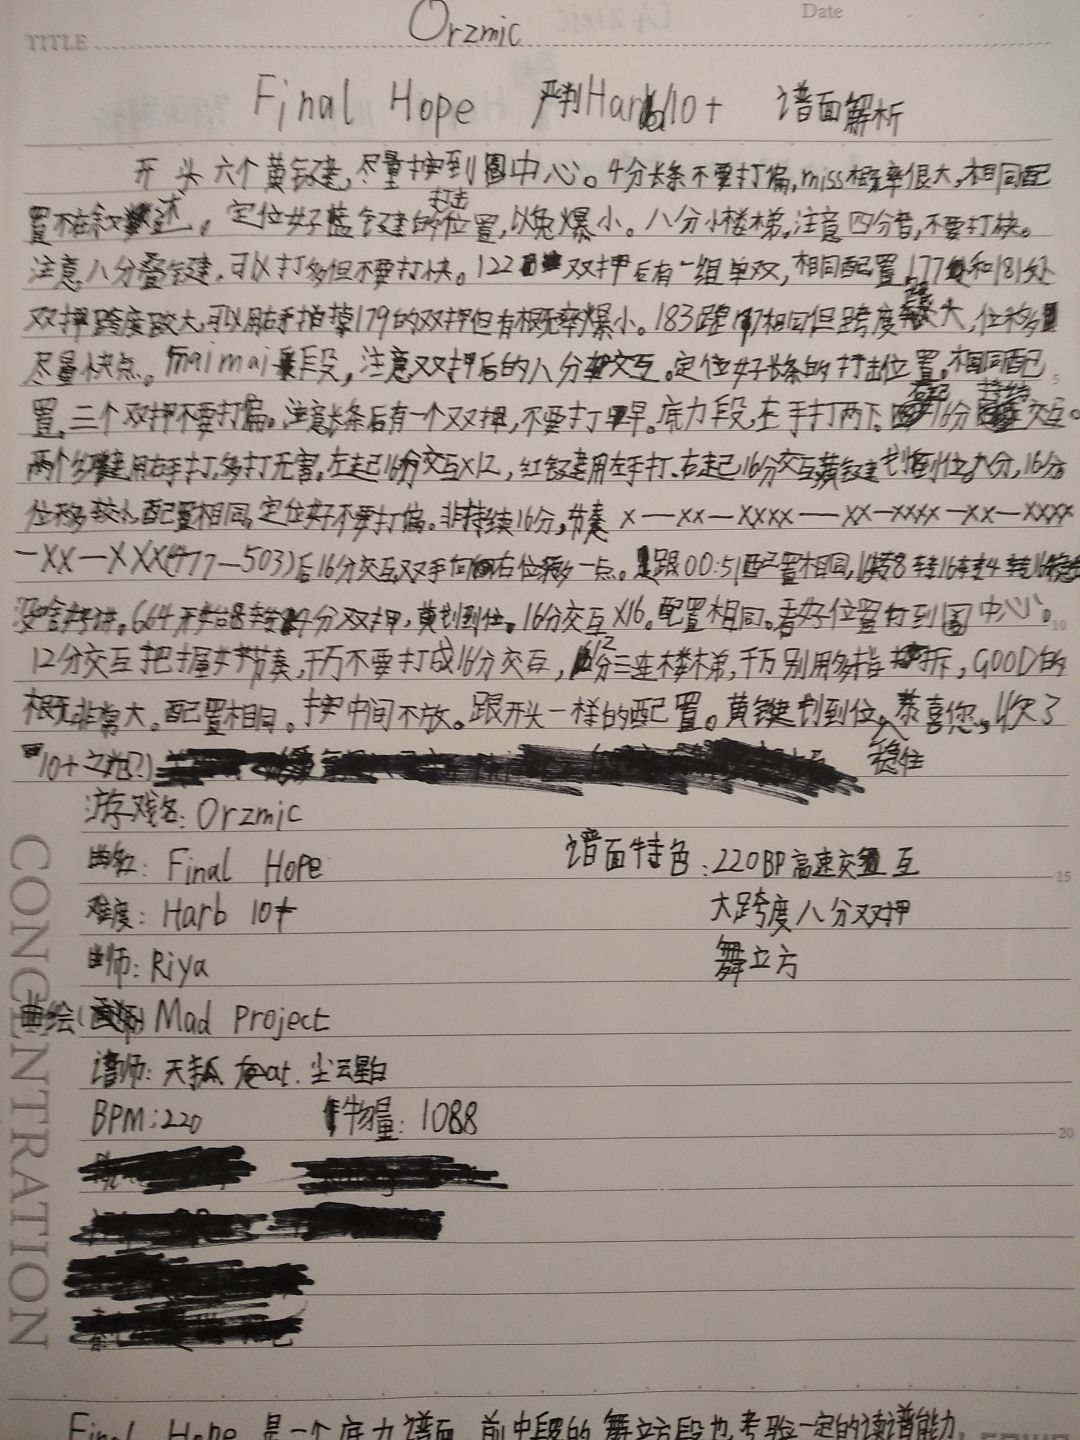 Orzmic
Date
TITLE
Final Hope 严判Harb10+ 谱面解析
开头六个黄键,尽量按到圈中心。4分长条不要打偏,miss概率很大,相同配
置不在叙述。定位好蓝键的打击位置,以免爆小。八分小楼梯,注意四分音,不要打快。
注意八分叠键,可以打多但不要打快。122双押后有一组单双,相同配置,177和181处
双押跨度较大,可以用右手拍掉179的双押但有概率爆小。183跟177相同但跨度较大,位移
尽量快点。maimai段,注意双押后的八分交互。定位好长条的打击位置。相同配
置。三个双押不要打偏。注意长条后有一个双押,不要打早。底力段,左手打两下,右起16分持续交互。
两个红键用右手打,多打无害。左起16分交互x12,红键用左手打。右起16分交互黄键划到位,16分
位移较小,配置相同,定位好不要打偏。非持续16分,节奏 x—xx—xxxx——xx—xxxx—xx—xxxx
—xx—xxx(477—503)后16分交互,双手向右位移一点。跟00:51配置相同,16转8转16转4转16
没啥好讲。664开始8转4分双押,黄划到位。16分交互x16。配置相同。看好位置打到圈中心。
12分交互把握好节奏,千万不要打成16分交互,12分三连楼梯,千万别用多指拆,GOOD的
概率非常大。配置相同。按中间不放。跟开头一样的配置。黄键划到位,稳住,恭喜您,收了
10+之光(?)
游戏名: Orzmic
曲名: Final Hope 谱面特色: 220BP高速交互
难度: Harb 10+ 大跨度八分双押
曲师: Riya 舞立方
曲绘(画师) Mad Project
谱师: 天孤 feat. 尘云星白
BPM: 220 物量: 1088
CONCENTRATION
5
10
15
20
Final Hope 是一个底力谱面,前中段的舞立方段也考验一定的读谱能力